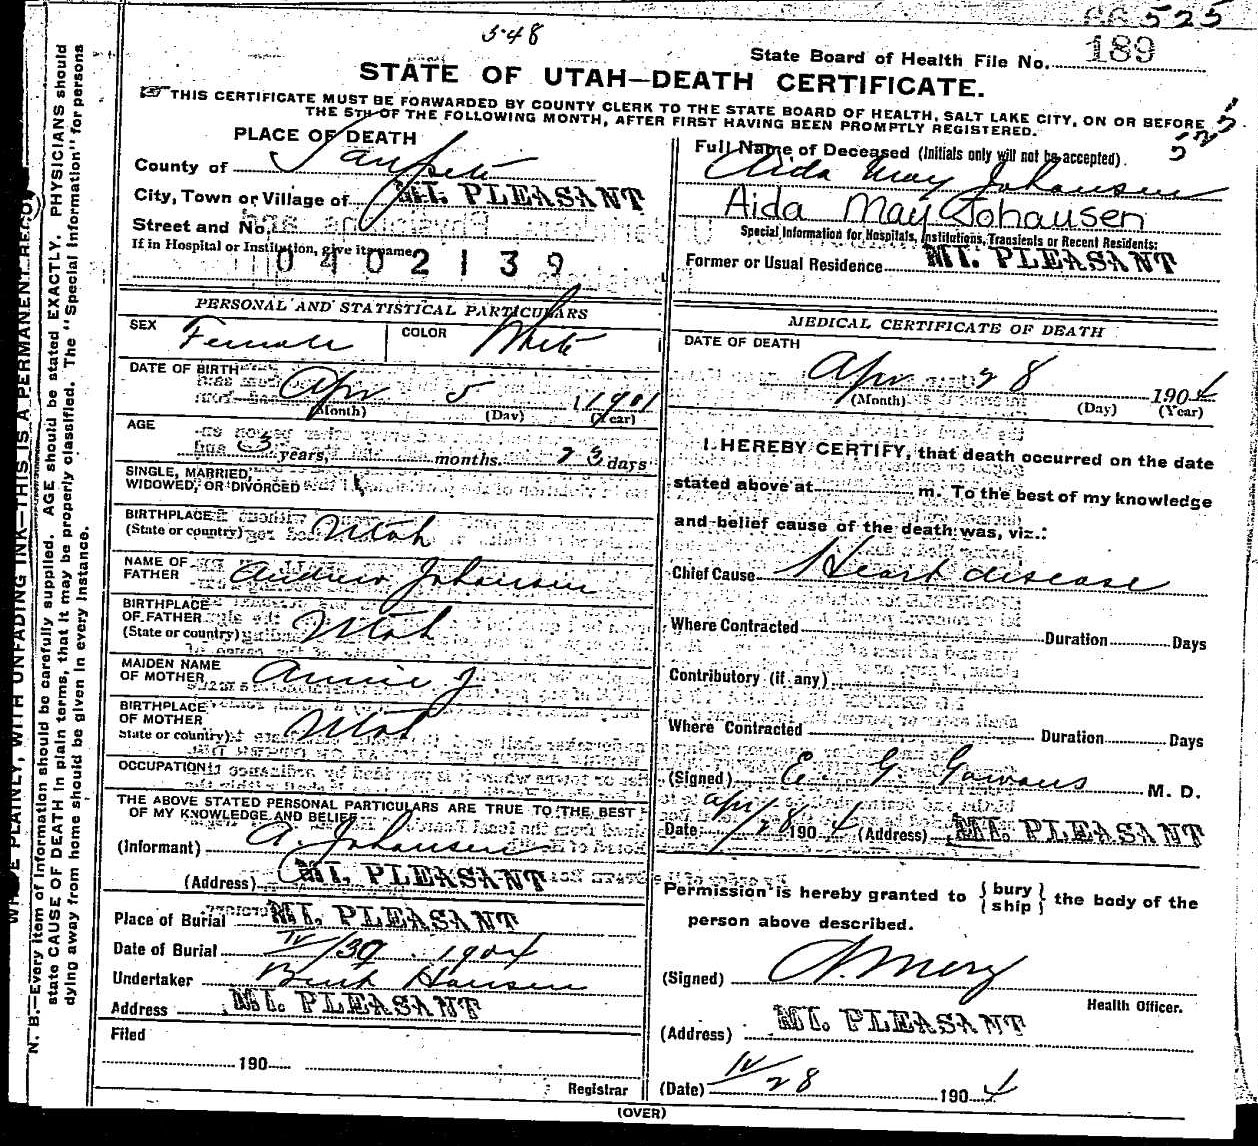 66 525
548
State Board of Health File No. 189
STATE OF UTAH—DEATH CERTIFICATE.
THIS CERTIFICATE MUST BE FORWARDED BY COUNTY CLERK TO THE STATE BOARD OF HEALTH, SALT LAKE CITY, ON OR BEFORE
THE 5TH OF THE FOLLOWING MONTH, AFTER FIRST HAVING BEEN PROMPTLY REGISTERED.
PLACE OF DEATH
County of Sanpete
City, Town or Village of MT. PLEASANT
Street and No.
If in Hospital or Institution, give its name
0402139
Full Name of Deceased (Initials only will not be accepted).
Aida May Johansen
Aida May Johausen
Special Information for Hospitals, Institutions, Transients or Recent Residents:
Former or Usual Residence MT. PLEASANT
PERSONAL AND STATISTICAL PARTICULARS
SEX Female COLOR White
DATE OF BIRTH Apr 5 1901
(Month) (Day) (Year)
AGE 3 years, months. 23 days
SINGLE, MARRIED,
WIDOWED, OR DIVORCED
BIRTHPLACE
(State or country) Utah
NAME OF
FATHER Andrew Johansen
BIRTHPLACE
OF FATHER
(State or country) Utah
MAIDEN NAME
OF MOTHER Annie J
BIRTHPLACE
OF MOTHER
State or country) Utah
OCCUPATION
THE ABOVE STATED PERSONAL PARTICULARS ARE TRUE TO THE BEST
OF MY KNOWLEDGE AND BELIEF
(Informant) A. Johansen
(Address) MT. PLEASANT
Place of Burial MT. PLEASANT
Date of Burial IV/30 1904
Undertaker Hansen
Address MT. PLEASANT
Filed
190
Registrar
MEDICAL CERTIFICATE OF DEATH
DATE OF DEATH
Apr 28 1904
(Month) (Day) (Year)
I HEREBY CERTIFY, that death occurred on the date
stated above at m. To the best of my knowledge
and belief cause of the death was, viz.:
Chief Cause Heart disease
Where Contracted Duration Days
Contributory (if any)
Where Contracted Duration Days
(Signed) E. G. Gowans M. D.
Date Apr/28 1904 (Address) MT. PLEASANT
Permission is hereby granted to {bury
ship} the body of the
person above described.
(Signed)
Health Officer.
(Address) MT. PLEASANT
(Date) IV/28 1904
(OVER)
WRITE PLAINLY, WITH UNFADING INK—THIS IS A PERMANENT RECORD
N. B.—Every item of information should be carefully supplied. AGE should be stated EXACTLY. PHYSICIANS should
state CAUSE OF DEATH in plain terms, that it may be properly classified. The "Special Information" for persons
dying away from home should be given in every instance.